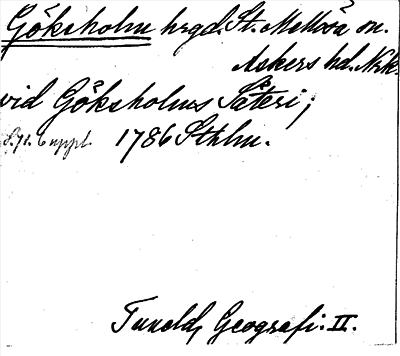 Göksholm hrgd. St. Mellösa sn.
Askers hd. Nrk.
vid Göksholms Säteri;
S. 71. 6 uppl. 1786 Sthlm.
Tuneld, Geografi. II.